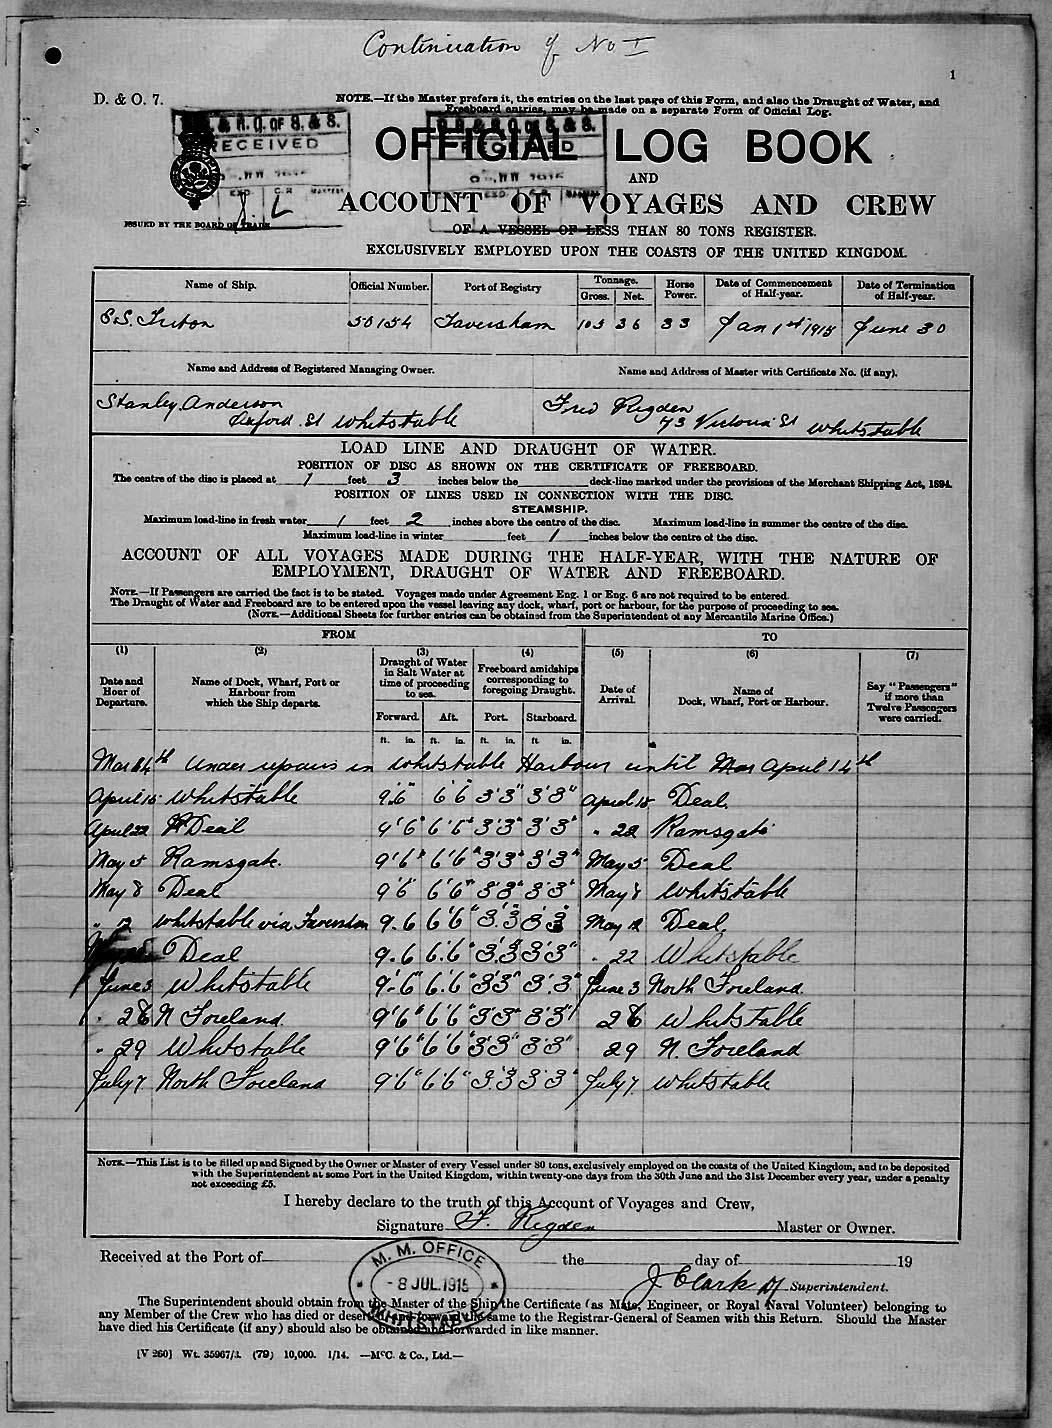 Continuation of No I
1
D. & O. 7.
NOTE.—If the Master prefers it, the entries on the last page of this Form, and also the Draught of Water, and
Freeboard entries, may be made on a separate Form of Official Log.
& R. O. OF S. & S.
RECEIVED
OFFICIAL LOG BOOK
AND
ACCOUNT OF VOYAGES AND CREW
ISSUED BY THE BOARD OF TRADE
OF A VESSEL OF LESS THAN 80 TONS REGISTER.
EXCLUSIVELY EMPLOYED UPON THE COASTS OF THE UNITED KINGDOM.
Name of Ship. Official Number. Port of Registry Tonnage. Gross. Net. Horse Power. Date of Commencement of Half-year. Date of Termination of Half-year.
S.S. Triton 50154 Faversham 105 36 33 Jan 1st 1915 June 30
Name and Address of Registered Managing Owner. Name and Address of Master with Certificate No. (if any).
Stanley Anderson Fred Rigden
Oxford St Whitstable 73 Victoria St Whitstable
LOAD LINE AND DRAUGHT OF WATER.
POSITION OF DISC AS SHOWN ON THE CERTIFICATE OF FREEBOARD.
The centre of the disc is placed at 1 feet 3 inches below the deck-line marked under the provisions of the Merchant Shipping Act, 1894.
POSITION OF LINES USED IN CONNECTION WITH THE DISC.
STEAMSHIP.
Maximum load-line in fresh water 1 feet 2 inches above the centre of the disc. Maximum load-line in summer the centre of the disc.
Maximum load-line in winter feet 1 inches below the centre of the disc.
ACCOUNT OF ALL VOYAGES MADE DURING THE HALF-YEAR, WITH THE NATURE OF
EMPLOYMENT, DRAUGHT OF WATER AND FREEBOARD.
NOTE.—If Passengers are carried the fact is to be stated. Voyages made under Agreement Eng. 1 or Eng. 6 are not required to be entered.
The Draught of Water and Freeboard are to be entered upon the vessel leaving any dock, wharf, port or harbour, for the purpose of proceeding to sea.
(NOTE.—Additional Sheets for further entries can be obtained from the Superintendent of any Mercantile Marine Office.)
FROM TO
(1) (2) (3) (4) (5) (6) (7)
Date and Hour of Departure. Name of Dock, Wharf, Port or Harbour from which the Ship departs. Draught of Water in Salt Water at time of proceeding to sea. Freeboard amidships corresponding to foregoing Draught. Date of Arrival. Name of Dock, Wharf, Port or Harbour. Say "Passengers" if more than Twelve Passengers were carried.
Forward. Aft. Port. Starboard.
ft. in. ft. in. ft. in. ft. in.
Mar 24th Under repairs in Whitstable Harbour until Mar April 14th
April 15 Whitstable 9.6" 6'6 3'3" 3'3" April 15 Deal.
April 22 R Deal 9'6" 6'6" 3'3" 3'3" " 22 Ramsgate
May 5 Ramsgate. 9'6" 6'6" 3'3" 3'3" May 5 Deal
May 8 Deal 9'6 6'6" 3'3" 3'3" May 8 Whitstable
" 12 Whitstable via Faversham 9.6 6'6" 3.3 3'3 May 12 Deal.
Deal 9.6 6.6" 3.3 3'3" " 22 Whitstable
June 3 Whitstable 9.6 6.6 3'3" 3'3" June 3 North Foreland
" 28 N Foreland. 9'6" 6'6" 3'3" 3'3" 28 Whitstable
" 29 Whitstable 9'6" 6'6" 3'3" 3'3" 29 N. Foreland
July 7 North Foreland 9'6" 6'6" 3.3 3'3" July 7. Whitstable
NOTE.—This List is to be filled up and Signed by the Owner or Master of every Vessel under 80 tons, exclusively employed on the coasts of the United Kingdom, and to be deposited
with the Superintendent at some Port in the United Kingdom, within twenty-one days from the 30th June and the 31st December every year, under a penalty
not exceeding £5.
I hereby declare to the truth of this Account of Voyages and Crew,
Signature F. Rigden Master or Owner.
Received at the Port of the day of 19
M. M. OFFICE
- 8 JUL 1915
WHITSTABLE
J Clark Dy Superintendent.
The Superintendent should obtain from the Master of the Ship the Certificate (as Mate, Engineer, or Royal Naval Volunteer) belonging to
any Member of the Crew who has died or deserted and forward the same to the Registrar-General of Seamen with this Return. Should the Master
have died his Certificate (if any) should also be obtained and forwarded in like manner.
[V 260] Wt. 35967/3. (79) 10,000. 1/14. —McC. & Co., Ltd.—